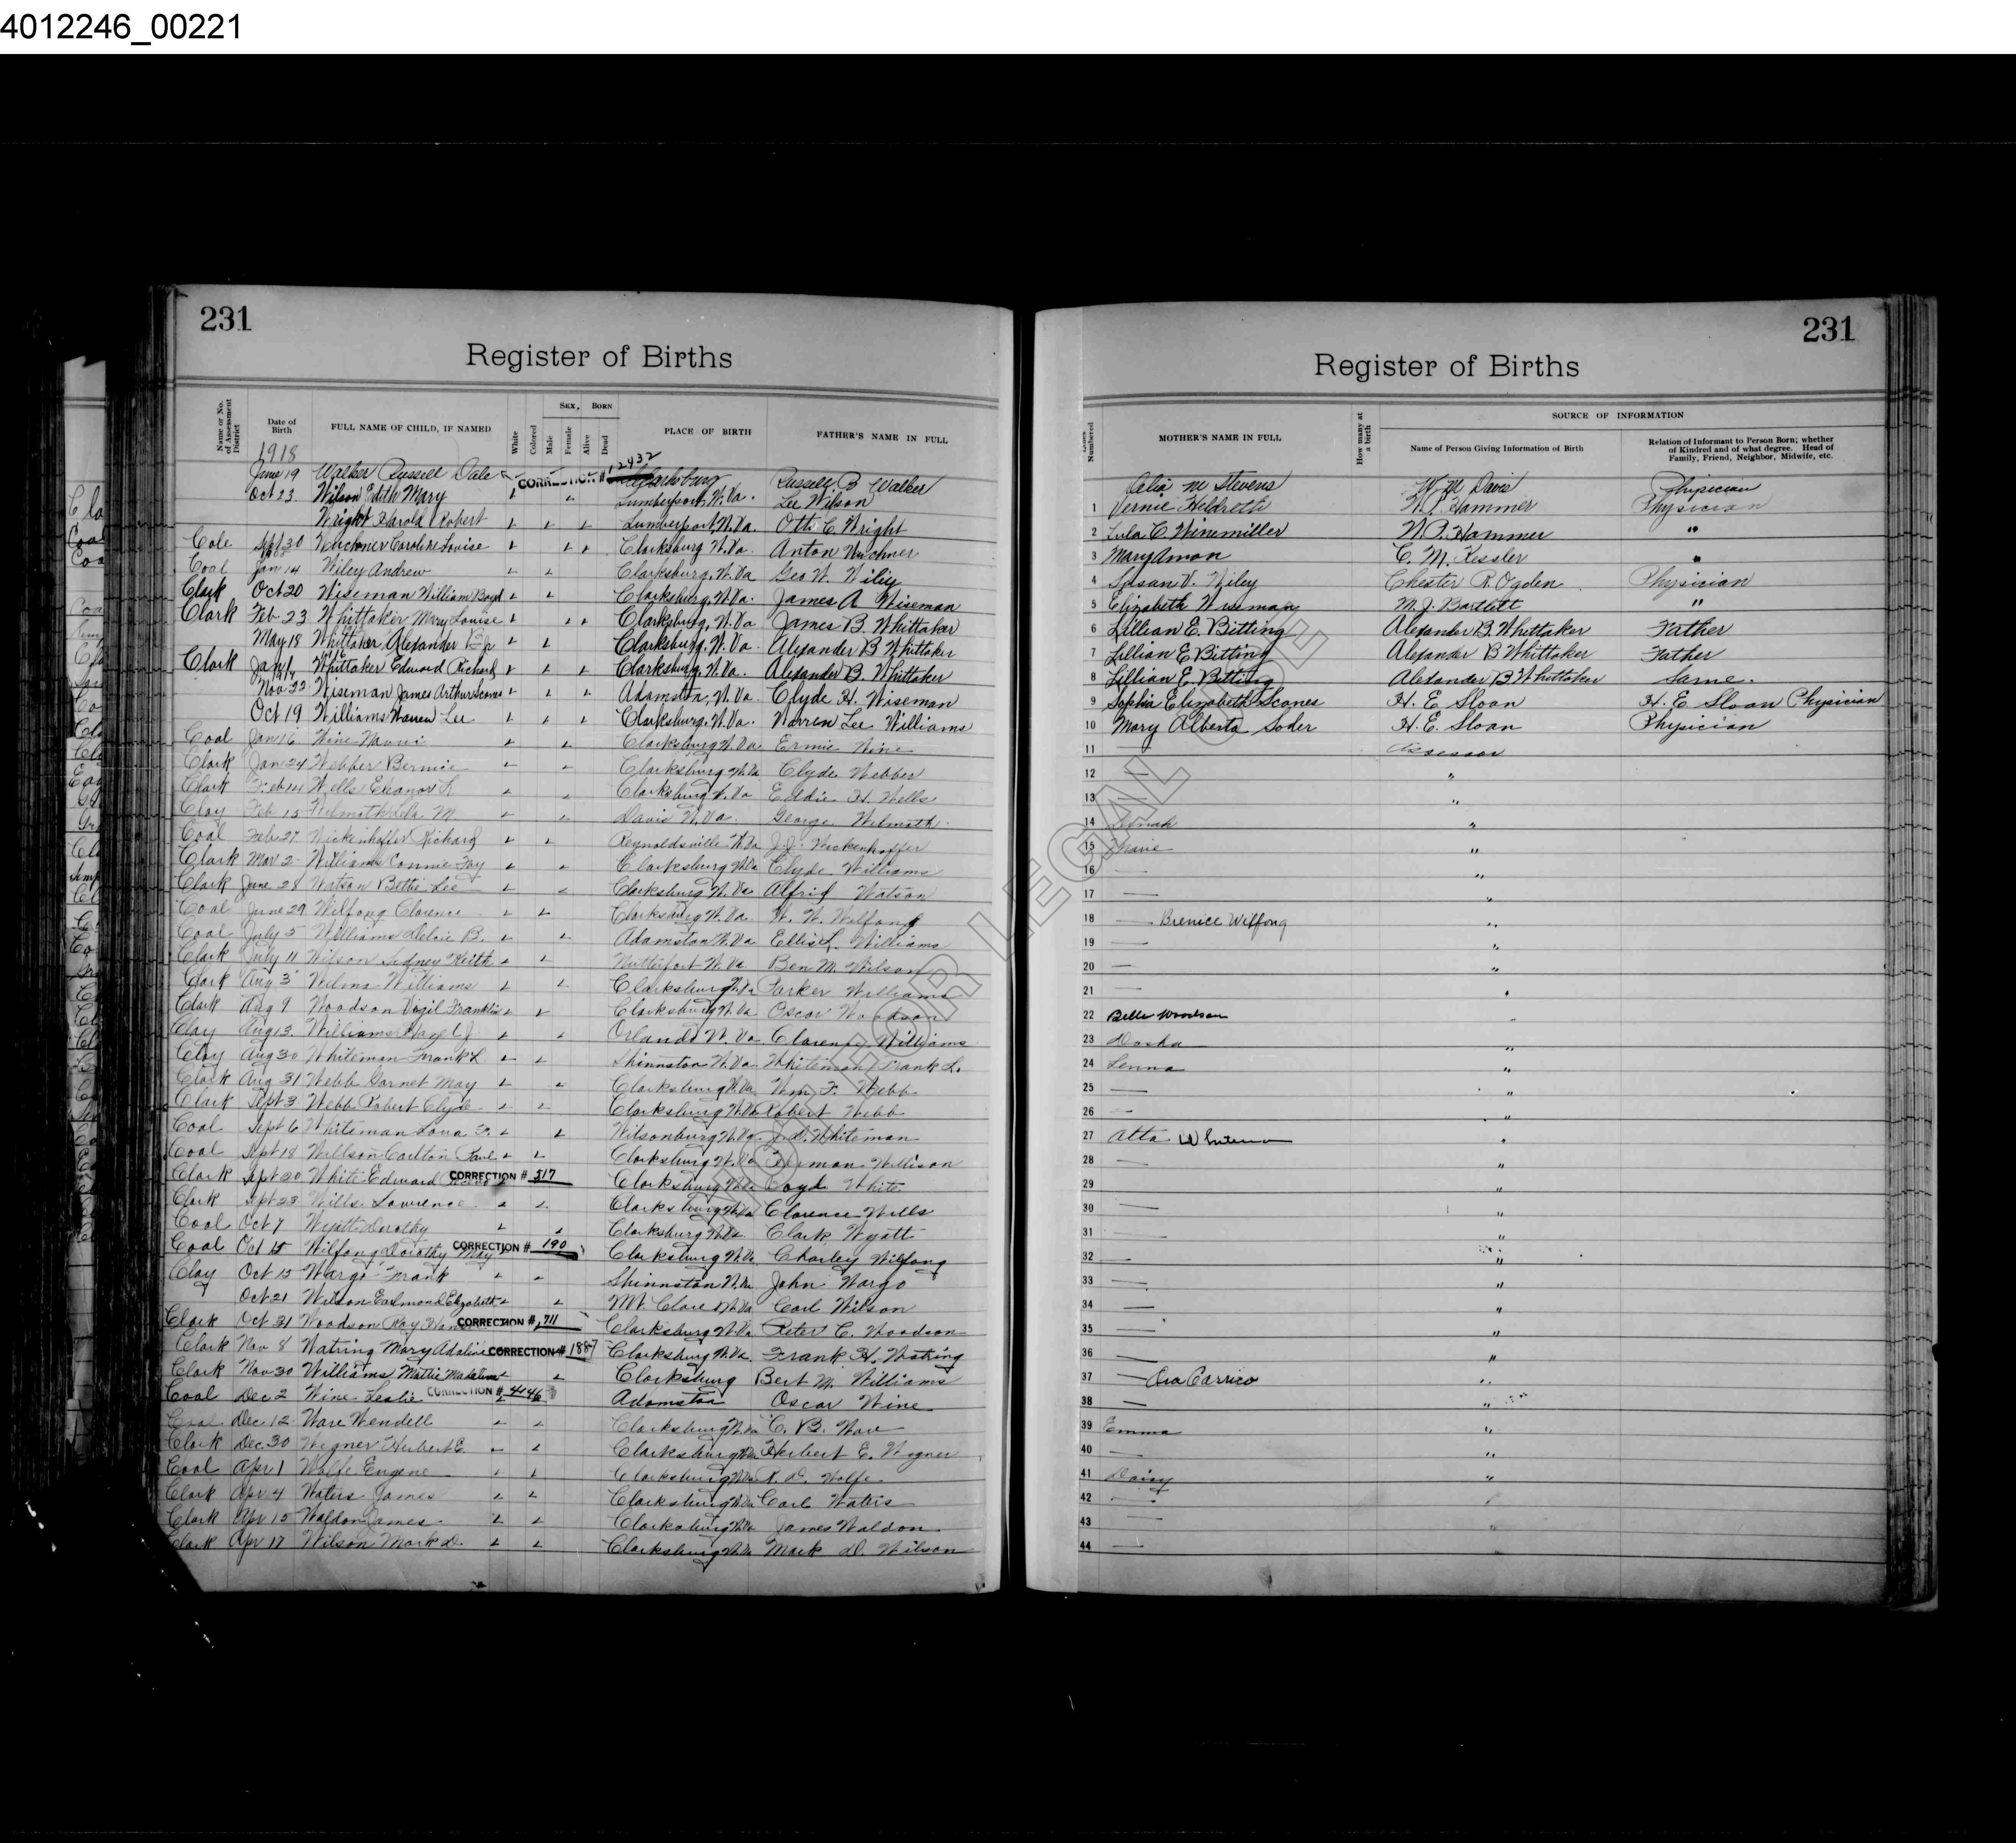 4012246_00221
231
Register of Births
Name or No. of Assessment District
Date of Birth
FULL NAME OF CHILD, IF NAMED
White
Colored
SEX, BORN
Male
Female
Alive
Dead
PLACE OF BIRTH
FATHER'S NAME IN FULL
1918
June 19 Walker Russell Dale CORRECTION # 12432 Clarksburg Russell B Walker
Oct 23 Wilson Edith Mary Lumberport, W. Va. Lee Wilson
Wright Harold Robert Lumberport, W. Va. Otto C. Wright
Cole Sept 30 Caroline Louise Clarksburg W. Va. Anton
Coal Jan 14 Wiley Andrew Clarksburg, W. Va Geo W. Wiley
Clark Oct 20 Wiseman William Boyd Clarksburg, W. Va. James A Wiseman
Clark Feb 23 Whittaker Mary Louise Clarksburg, W. Va James B. Whittaker
May 18 Whittaker Alexander B Jr Clarksburg, W. Va. Alexander B Whittaker
Clark Jan 1 Whittaker Edward Richard Clarksburg, W. Va. Alexander B. Whittaker
Nov 22 Wiseman James Arthur Scones Adamston, W. Va. Clyde H. Wiseman
Oct 19 Williams Warren Lee Clarksburg, W. Va. Warren Lee Williams
Coal Jan 16 Wine Clarksburg W. Va Ermie Wine
Clark Jan 24 Webber Bernice Clarksburg W. Va Clyde Webber
Clark Feb 14 Wells Eleanor L Clarksburg W. Va Eddie H. Wells
Clay Feb 13 Wilmoth Lela M. Davis W. Va. George Wilmoth
Coal Feb 27 Wickenhoffer Richard Reynoldsville W. Va J. J. Wickenhoffer
Clark Mar 2 Williams Connie Fay Clarksburg W. Va Clyde Williams
Clark June 28 Watson Bettie Lee Clarksburg W. Va Alfred Watson
Coal June 29 Wilfong Clarence Clarksburg W. Va. W. W. Wilfong
Coal July 5 Williams B. Adamston W. Va Ellis L. Williams
Clark July 11 Wilson Sidney Keith Nutterfort W. Va. Ben M. Wilson
Clark Aug 3 Wilma Williams Clarksburg W. Va Parker Williams
Clark Aug 9 Woodson Virgil Franklin Clarksburg W. Va Oscar Woodson
Clay Aug 13 Williams Hazel J Orlando W. Va Clarence Williams
Clay Aug 30 Whiteman Frank L Shinnston W. Va Whiteman Frank L.
Clark Aug 31 Webb Garnet May Clarksburg W. Va Wm. F. Webb
Clark Sept 3 Webb Robert Clyde Clarksburg W. Va Robert Webb
Coal Sept 6 Whiteman Lona Wilsonburg W. Va J. D. Whiteman
Coal Sept 18 Willison Carlton Paul Clarksburg W. Va Willison
Clark Sept 20 White Edward CORRECTION # 517 Clarksburg W. Va Boyd White
Clark Sept 23 Wills Lawrence Clarksburg W. Va Clarence Wills
Coal Oct 7 Wyatt Dorothy Clarksburg W. Va. Clark Wyatt
Coal Oct 15 Wilfong Dorothy May CORRECTION # 190 Clarksburg W. Va. Charley Wilfong
Clay Oct 15 Wargo Frank Shinnston W. Va John Wargo
Oct 21 Wilson Elizabeth Mt. Clare W. Va Carl Wilson
Clark Oct 31 Woodson Ray CORRECTION # 711 Clarksburg W. Va Peter C. Woodson
Clark Nov 8 Watring Mary Adaline CORRECTION # 1887 Clarksburg W. Va. Frank H. Watring
Clark Nov 30 Williams Mattie Madeline Clarksburg Bert M. Williams
Coal Dec 2 Wine Leslie CORRECTION # 4146 Adamston Oscar Wine
Coal Dec 12 Ware Wendell Clarksburg W. Va C. B. Ware
Clark Dec 30 Wegner Herbert E. Clarksburg W. Va Herbert E. Wegner
Coal Apr 1 Wolfe Eugene Clarksburg W. Va D. Wolfe
Clark Apr 4 Waters James Clarksburg W. Va Carl Waters
Clark Apr 15 Waldon James Clarksburg W. Va James Waldon
Clark Apr 17 Wilson Mark D. Clarksburg W. Va Mark D. Wilson
231
Register of Births
Numbered
MOTHER'S NAME IN FULL
How many at a birth
SOURCE OF INFORMATION
Name of Person Giving Information of Birth
Relation of Informant to Person Born; whether of Kindred and of what degree. Head of Family, Friend, Neighbor, Midwife, etc.
Celia M Stevens W M Davis Physician
1 Vernie Heldreth W. P. Hammer Physician
2 Lula C Winemiller W. P. Hammer "
3 Mary Amon C. M. Kessler "
4 Susan V. Wiley Chester R. Ogden Physician
5 Elizabeth Wiseman M. J. Bartlett "
6 Lillian E. Bitting Alexander B. Whittaker Father
7 Lillian E Bitting Alexander B Whittaker Father
8 Lillian E. Bitting Alexander B. Whittaker Same.
9 Sophia Elizabeth Scones H. E Sloan H. E Sloan Physician
10 Mary Alberta Soder H. E. Sloan Physician
11 — Assessor
12 — "
13 "
14 "
15 Marie "
16 — "
17 — "
18 — Brenice Wilfong "
19 — "
20 — "
21 — "
22 Belle Woodson "
23 Dosha "
24 Lenna "
25 — "
26 — "
27 Atta Whiteman "
28 — "
29 — "
30 — "
31 — "
32 — "
33 — "
34 — "
35 — "
36 — "
37 — Ora Carrico "
38 — "
39 Emma "
40 — "
41 Daisy "
42 — "
43 — "
44 — "
NOT FOR LEGAL USE